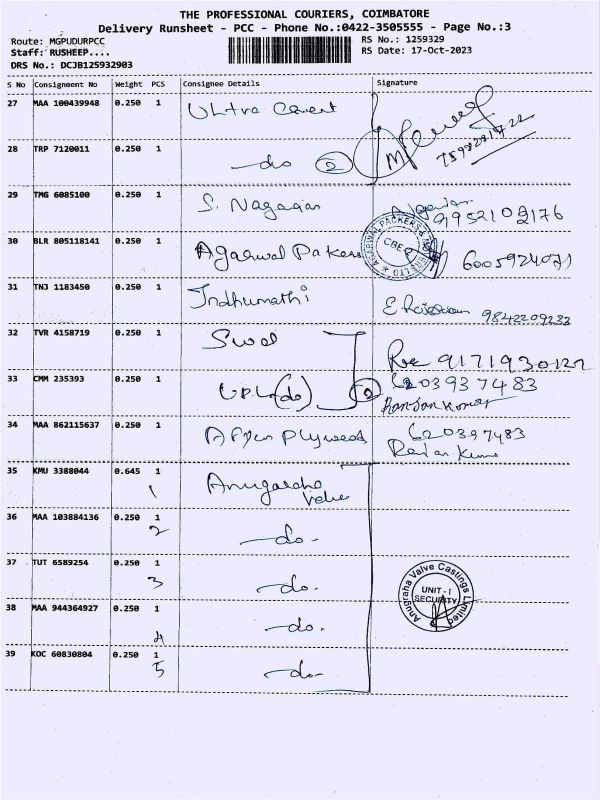 THE PROFESSIONAL COURIERS, COIMBATORE
Delivery Runsheet - PCC - Phone No.:0422-3505555 - Page No.:3
Route: MGPUDURPCC RS No.: 1259329
Staff: RUSHEEP.... RS Date: 17-Oct-2023
DRS No.: DCJB125932903
S No Consignment No Weight PCS Consignee Details Signature
27 MAA 100439948 0.250 1 Ultra
28 TRP 7120011 0.250 1 -do (2)
29 TMG 6085100 0.250 1 S. Nagarajan 9952102176
30 BLR 805118141 0.250 1 Agarwal Pakers CBE 6005924071
31 TNJ 1183450 0.250 1 Indhumathi 9842209232
32 TVR 4158719 0.250 1
33 CMM 235393 0.250 1 U.P.L (do) (2) 6203937483
Ranjan Kumar
34 MAA 862115637 0.250 1 Plywood 620397483
35 KMU 3388044 0.645 1
1
36 MAA 103884136 0.250 1 -do-
2
37 TUT 6589254 0.250 1 -do-
3
Anugraha Valve Castings Limited
UNIT - I
SECURITY
38 MAA 944364927 0.250 1 -do-
4
39 KOC 60830804 0.250 1 -do-
5